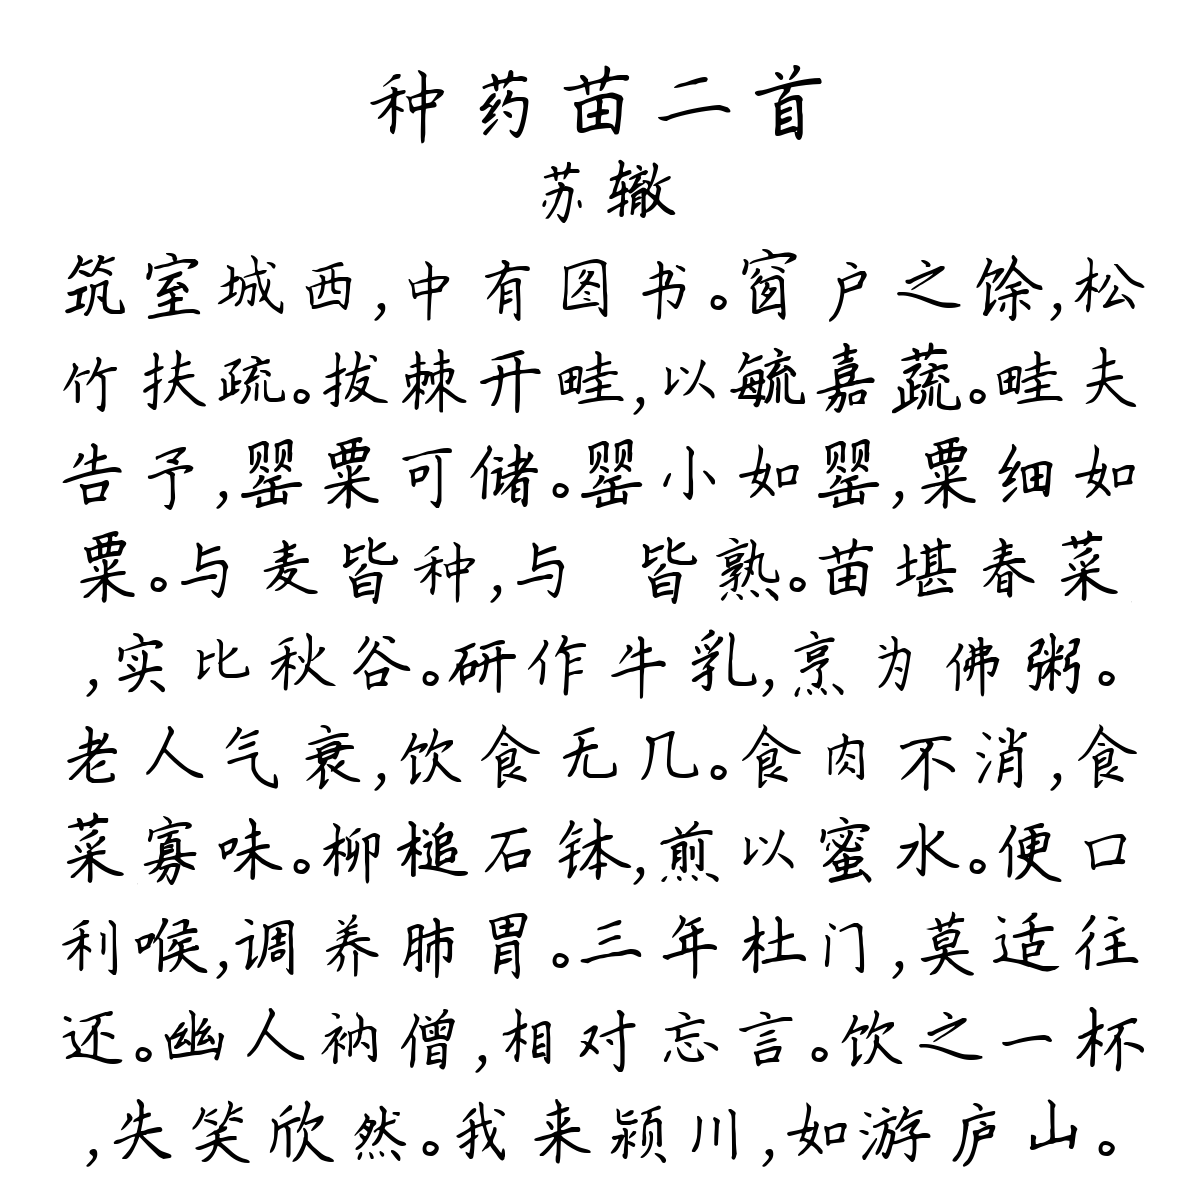 种药苗二首
苏辙
筑室城西,中有图书。窗户之馀,松
竹扶疏。拔棘开畦,以毓嘉蔬。畦夫
告予,罂粟可储。罂小如罂,粟细如
粟。与麦皆种,与 皆熟。苗堪春菜
,实比秋谷。研作牛乳,烹为佛粥。
老人气衰,饮食无几。食肉不消,食
菜寡味。柳槌石钵,煎以蜜水。便口
利喉,调养肺胃。三年杜门,莫适往
还。幽人衲僧,相对忘言。饮之一杯
,失笑欣然。我来颍川,如游庐山。